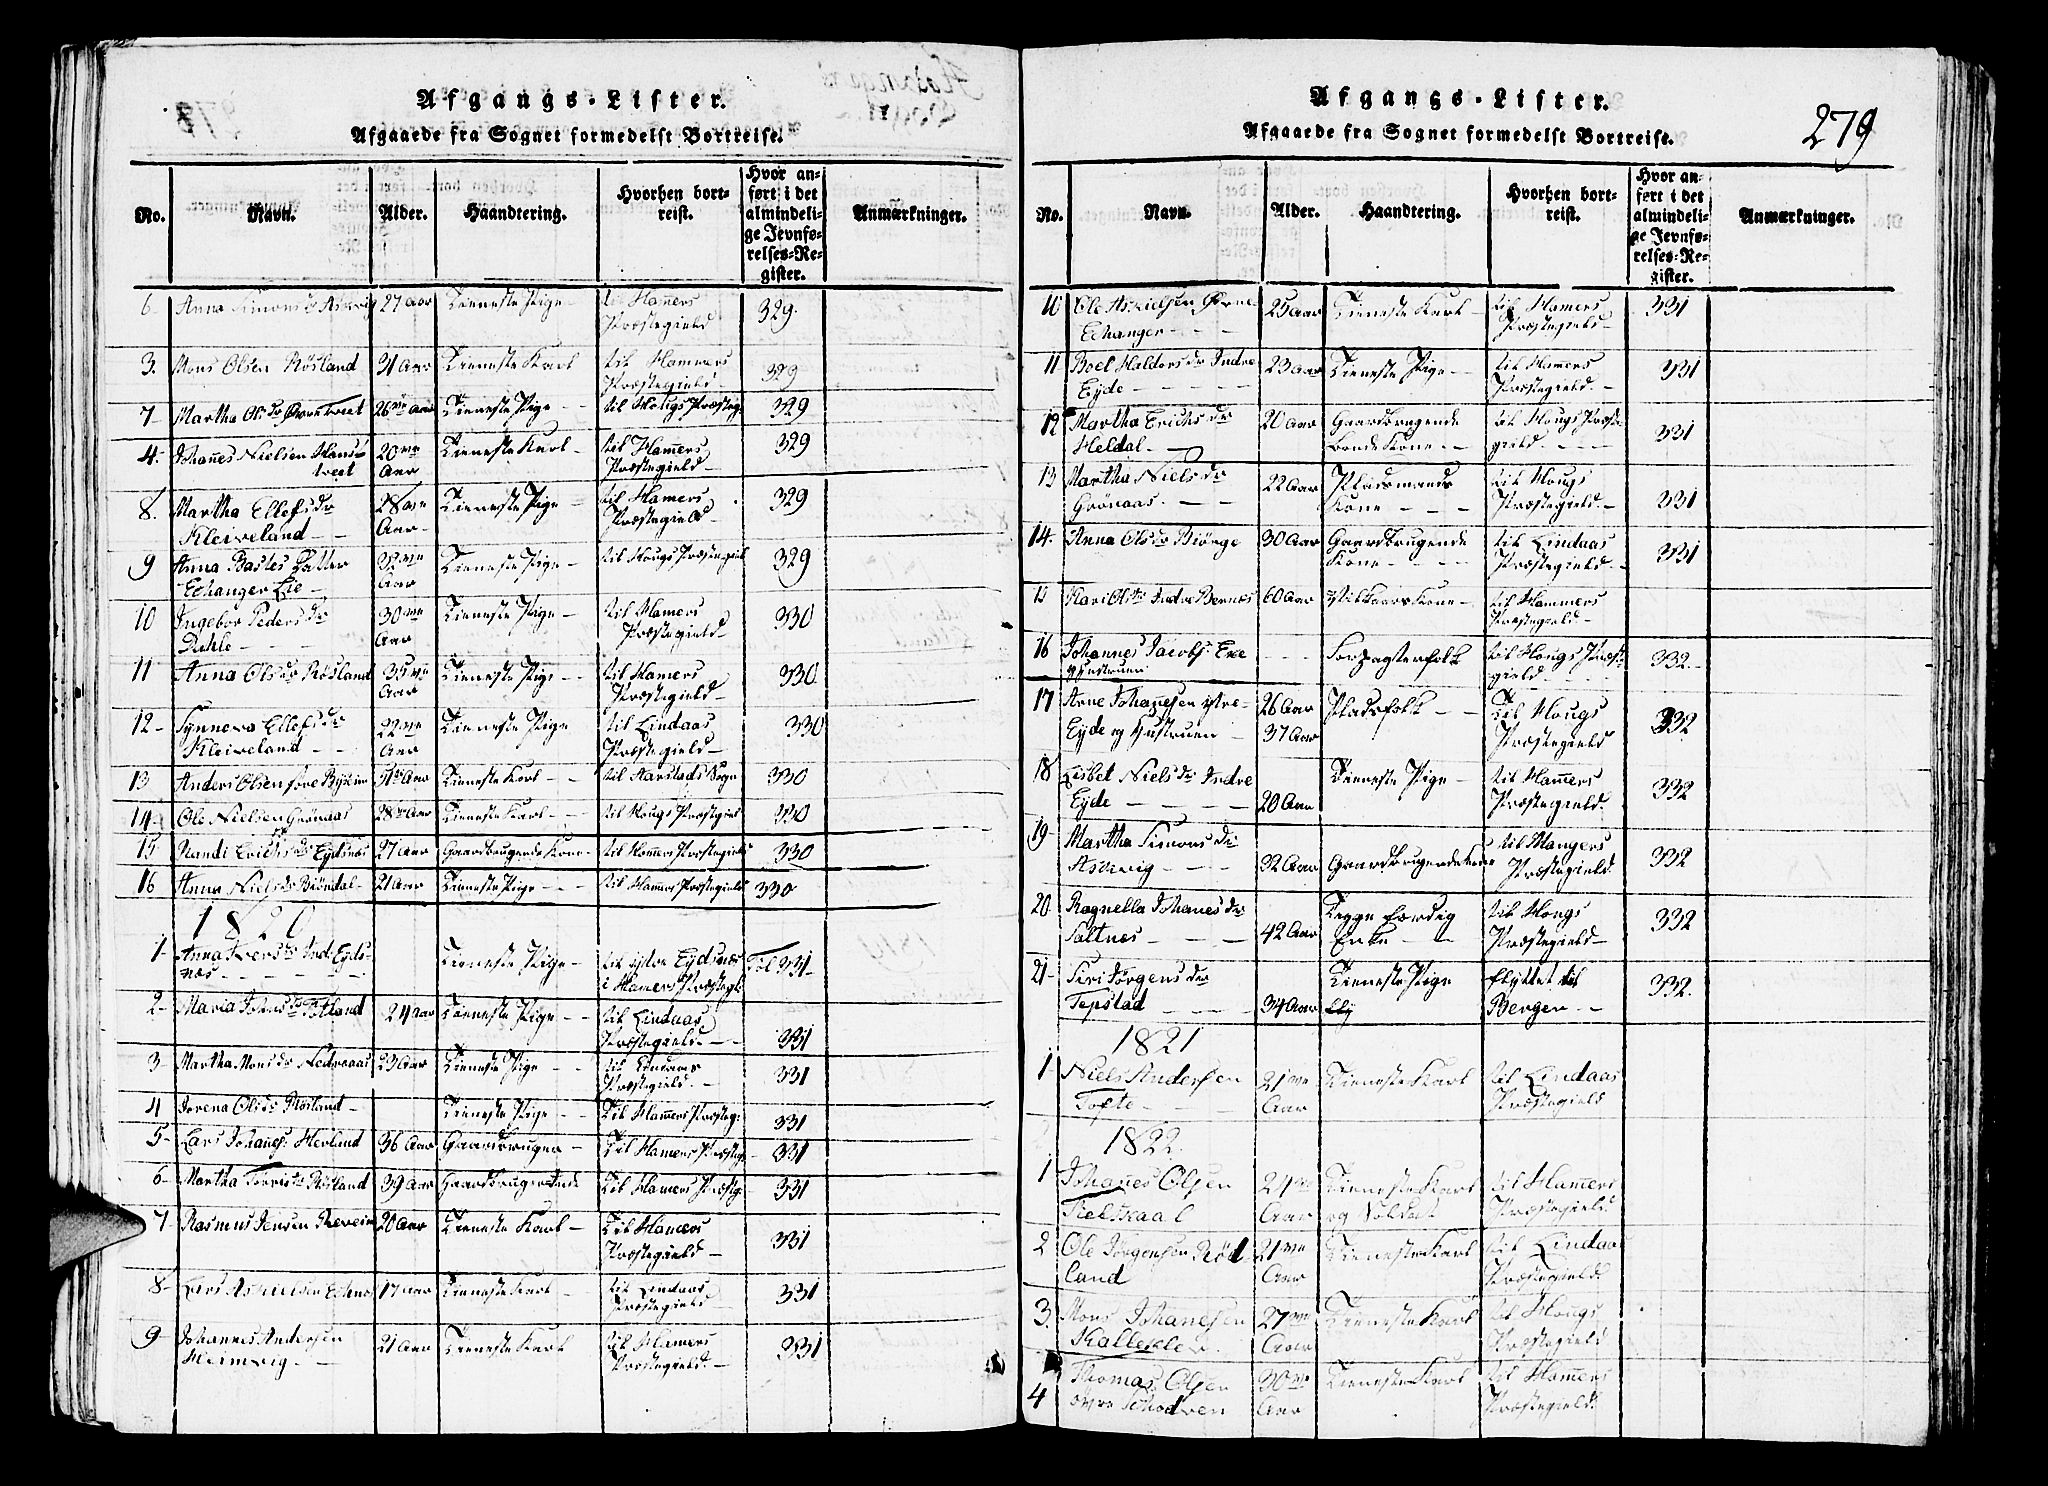 Afgangs-Lister.
Afgaaede fra Sognet formedelst Bortreise.
No. Navn. Alder. Haandtering. Hvorhen bortreist. Hvor anført i det almindelige Jevnførelses-Register. Anmærkninger.
6 Anna Simonsdr Askvig 27 Aar Tieneste Pige til Hamers Præstegield 329.
3. Mons Olsen Røsland 31 Aar Tieneste Karl til Hammers Præstegield 329
7 Martha Olsdr 26 Aar Tieneste Pige til Hougs Præsteg: 329
4. Johanes Nielsen 20 Aar Tieneste Karl til Hamers Præstegield 329
8. Martha Ellefsdr Kleiveland 28 Aar Tieneste Pige til Hamers Præstegield 329
9 Anna Bastes Datter Echanger Eie Aar Tieneste Pige til Hougs Præstegield 329
10 Ingebor Pedersdr Duhle 30 Aar Tieneste Pige til Hamers Præstegield 330
11 Anna Olsdr Røsland 35 Aar Tieneste Pige til Hamers Præstegield 330
12 Synneva Ellefsdr Kleiveland 22 Aar Tieneste Pige til Lindaas Præstegield 330
13 Anders Olsen Aar Tieneste Karl til Harstads Sogn 330
14 Ole Nielsen Grönaas 28 Aar Tieneste Karl til Hougs Præstegield 330
15 Randi Erichsdr Eydsnes 27 Aar Gaardbrugende Kone til Hamers Præstegield 330
16 Anna Nielsdr Biöndal 21 Aar Tieneste Pige til Hamers Præstegield 330
1820
1 Anna Iversdr Ind: Eydsnes Tieneste Pige til ystre Eydsnes i Hamers Præstegl: Fol 331
2 Maria Johnsdr 24 Aar Tieneste Pige til Lindaas Præstegield 331
3 Martha Monsdr Nedreaas 23 Aar Tieneste Pige til Lindaas Præstegield 331
4 Olsdr Røsland Tieneste Pige Til Hamers Præsteg: 331
5 Lars Johanes: Herland 36 Aar Gaardbruger Til Hamers Præsteg: 331
6 Martha Røsland 39 Aar Gaardbrugerinde Til Hamers Præsteg: 331
7 Rasmus Jensen 20 Aar Tieneste Karl Til Hamers Præstegield 331
8 Lars 17 Aar Tieneste Karl til Lindaas Præstegield 331
9 Johannes Andersen Heimvig 21 Aar Tieneste Karl til Hamers Præstegield 331
Afgangs-Lister.
279
Afgaaede fra Sognet formedelst Bortreise.
No. Navn. Alder. Haandtering. Hvorhen bortreist. Hvor anført i det almindelige Jevnførelses-Register. Anmærkninger.
10 Ole Echanger 25 Aar Tieneste Karl til Hamers Præstegield 331
11 Boel Haldorsdr Indre Eyde 23 Aar Tieneste Pige til Hamers Præstegield 331
12 Martha Erichsdr Heldal 20 Aar Gaardbrugende Bonde Kone til Hougs Præstegield 331
13 Martha Nielsdr Grönaas 22 Aar Pladsmands Kone til Hougs Præstegield 331
14. Anna Olsdr Biörge 30 Aar Gaardbrugende Kone til Lindaas Præstegield 331
15 Kari Olsdr Indre Bernæs 60 Aar Vilkaars Kone til Hammers Præstegield
16 Johannes Jacobs: og Hustruen til Hougs Præstegield 332
17 Arne Johanesen ystre Eyde og Hustruen 26 Aar 37 Aar Pladsfolk Til Hougs Præstegield 332
18 Lisbet Nielsdr Indre Eyde 20 Aar Tieneste Pige til Hamers Præstegield 332
19 Martha Simonsdr Askvig 32 Aar Gaardbrugende Kone til Mangers Præstegield 332
20 Ragnella Johanesdr Saltnes 42 Aar Enke til Hougs Præstegield 332
21 Siri Jörgensdr Tepstad 34 Aar Tieneste Pige flyttet til Bergen 332.
1821
1 Niels Andersen Tofte 21 Aar Tieneste Karl til Lindaas Præstegield
1822.
1 Johanes Olsen 24 Aar Tieneste Karl og Soldat til Hamers Præstegield
2 Ole Jörgensen Röd land 21 Aar Tieneste Karl til Lindaas Præstegield
3. Mons Johanesen Kallekleev 27 Aar Tieneste Karl til Hougs Præstegield
4 Thomas Olsen 30 Aar Tieneste Karl til Hamers Præstegield